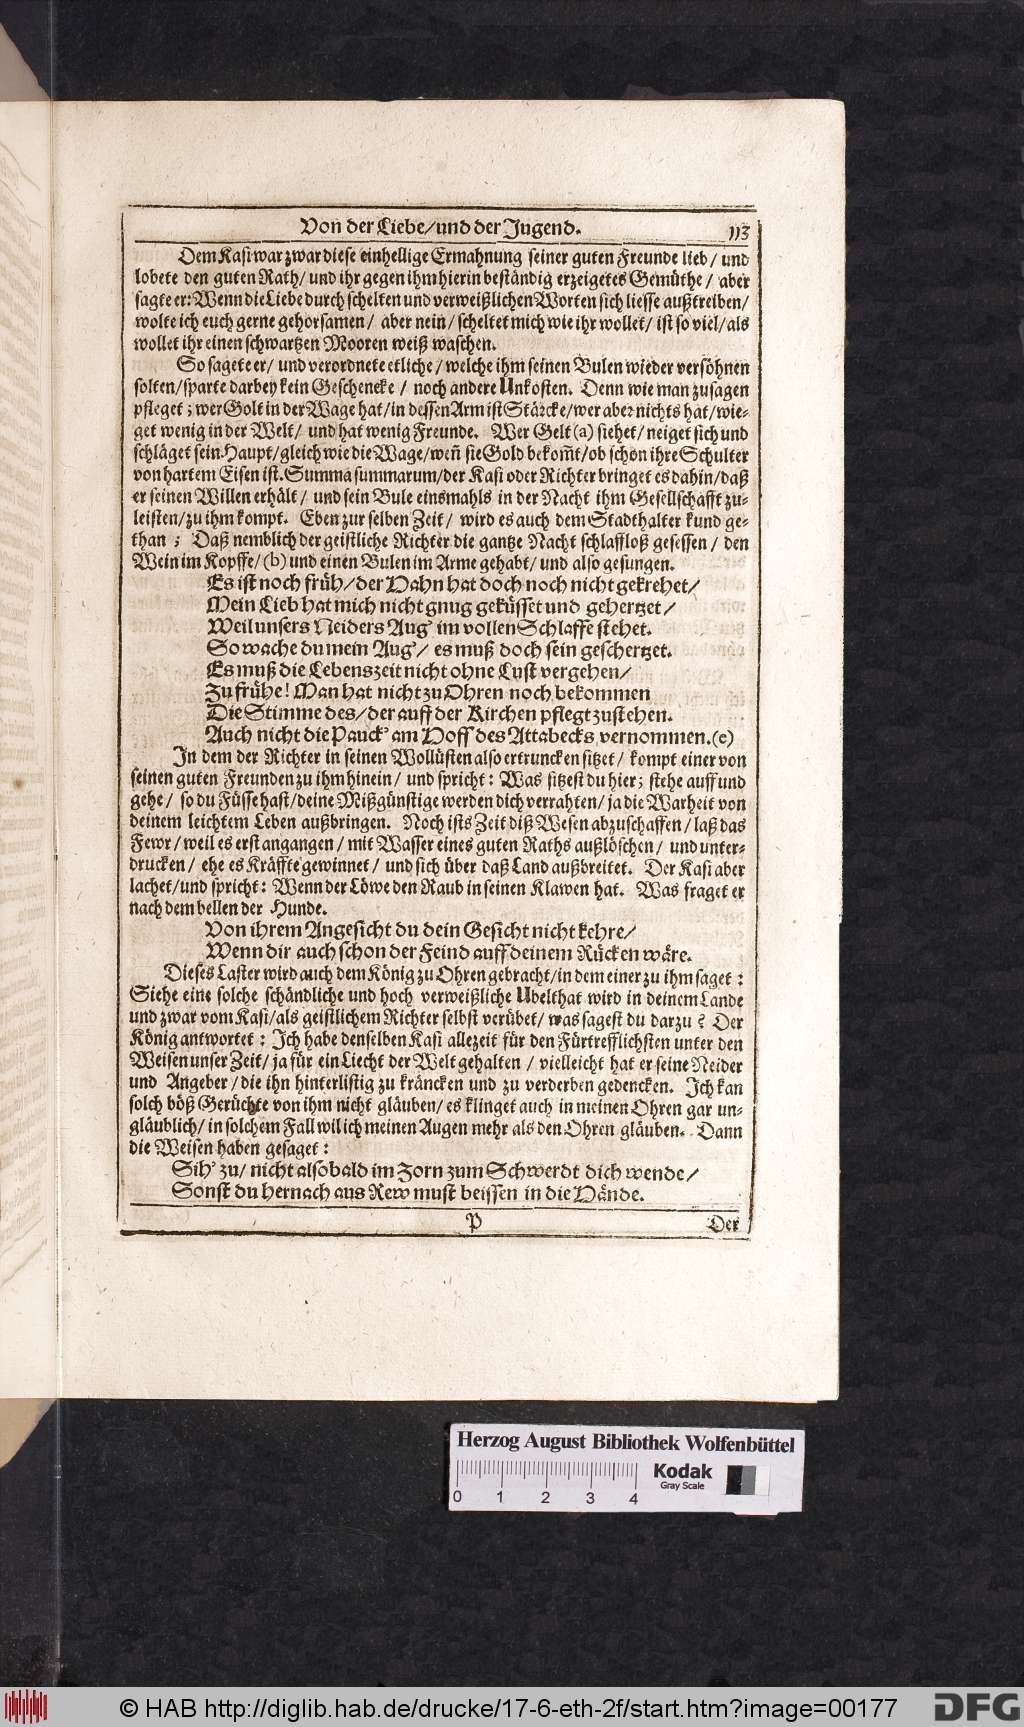 Von der Liebe/und der Jugend. 113
Dem Kasi war zwar diese einhellige Ermahnung seiner guten Freunde lieb/ und
lobete den guten Rath/ und ihr gegen ihm hierin beständig erzeigetes Gemüthe/ aber
sagte er: Wenn die Liebe durch schelten und verweißlichen Worten sich liesse außtreiben/
wolte ich euch gerne gehorsamen/ aber nein/ scheltet mich wie ihr wollet/ ist so viel/als
wollet ihr einen schwartzen Mooren weiß waschen.
So sagete er/ und verordnete etliche/ welche ihm seinen Bulen wieder versöhnen
solten/sparte darbey kein Geschencke/ noch andere Unkosten. Denn wie man zusagen
pfleget; wer Golt in der Wage hat/in dessen Arm ist Stärcke/wer aber nichts hat/wie-
get wenig in der Welt/ und hat wenig Freunde. Wer Gelt (a) siehet/ neiget sich und
schläget sein Haupt/gleich wie die Wage/weñ sie Gold bekom̃t/ob schon ihre Schulter
von hartem Eisen ist. Summa summarum/der Kasi oder Richter bringet es dahin/daß
er seinen Willen erhält/ und sein Bule einsmahls in der Nacht ihm Gesellschafft zu-
leisten/zu ihm kompt. Eben zur selben Zeit/ wird es auch dem Stadthalter kund ge-
than; Daß nemblich der geistliche Richter die gantze Nacht schlaffloß gesessen/ den
Wein im Kopffe/(b) und einen Bulen im Arme gehabt/ und also gesungen.
Es ist noch früh/der Hahn hat doch noch nicht gekrehet/
Mein Lieb hat mich nicht gnug geküsset und gehertzet/
Weil unsers Neiders Aug' im vollen Schlaffe stehet.
So wache du mein Aug'/ es muß doch sein geschertzet.
Es muß die Lebenszeit nicht ohne Lust vergehen/
Zu frühe! Man hat nicht zu Ohren noch bekommen
Die Stimme des/der auff der Kirchen pflegt zustehen.
Auch nicht die Pauck' am Hoff des Attabecks vernommen.(c)
In dem der Richter in seinen Wollüsten also ertruncken sitzet/ kompt einer von
seinen guten Freunden zu ihm hinein/ und spricht: Was sitzest du hier; stehe auff und
gehe/ so du Füsse hast/deine Mißgünstige werden dich verrahten/ja die Warheit von
deinem leichtem Leben außbringen. Noch ists Zeit diß Wesen abzuschaffen/laß das
Fewr/weil es erst angangen/ mit Wasser eines guten Raths außlöschen/ und unter-
drucken/ ehe es Kräffte gewinnet/ und sich über daß Land außbreitet. Der Kasi aber
lachet/und spricht: Wenn der Löwe den Raub in seinen Klawen hat. Was fraget er
nach dem bellen der Hunde.
Von ihrem Angesicht du dein Gesicht nicht kehre/
Wenn dir auch schon der Feind auff deinem Rücken wäre.
Dieses Laster wird auch dem König zu Ohren gebracht/in dem einer zu ihm saget:
Siehe eine solche schändliche und hoch verweißliche Ubelthat wird in deinem Lande
und zwar vom Kasi/als geistlichem Richter selbst verübet/ was sagest du darzu? Der
König antwortet: Ich habe denselben Kasi allezeit für den Fürtrefflichsten unter den
Weisen unser Zeit/ja für ein Liecht der Welt gehalten/ vielleicht hat er seine Neider
und Angeber/die ihn hinterlistig zu kräncken und zu verderben gedencken. Ich kan
solch böß Gerüchte von ihm nicht gläuben/es klinget auch in meinen Ohren gar un-
gläublich/in solchem Fall wil ich meinen Augen mehr als den Ohren gläuben. Dann
die Weisen haben gesaget:
Sih' zu/ nicht alsobald im Zorn zum Schwerdt dich wende/
Sonst du hernach aus Rew must beissen in die Hände.
P Der
Herzog August Bibliothek Wolfenbüttel
0 1 2 3 4
Kodak
Gray Scale
© HAB http://diglib.hab.de/drucke/17-6-eth-2f/start.htm?image=00177
DFG